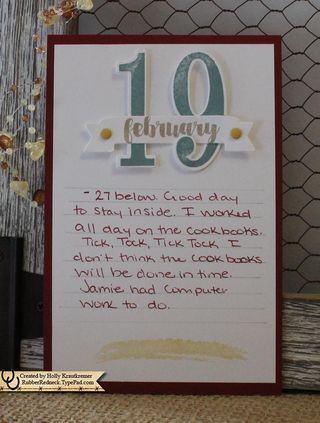 19
february
- 27 below. Good day
to stay inside. I worked
all day on the cookbooks.
Tick, Tock, Tick Tock. I
don't think the cookbooks
will be done in time.
Jamie had computer
work to do.
Created by Holly Krautkremer
RubberRedneck.TypePad.com